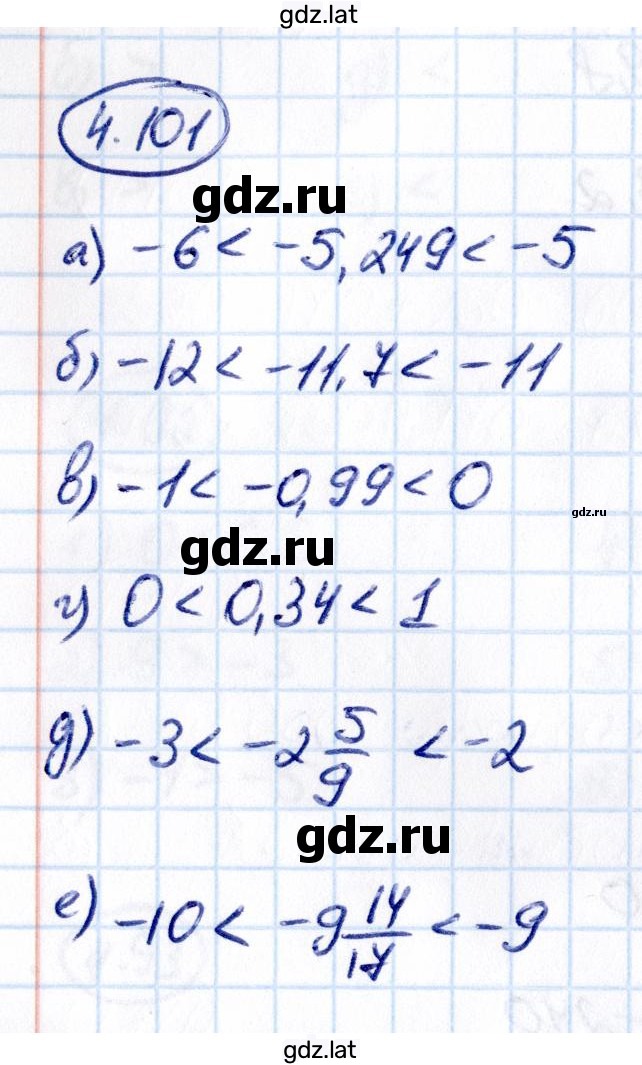 gdz.lat
4.101
gdz.ru
а) -6 < -5,249 < -5
б) -12 < -11,7 < -11
в) -1 < -0,99 < 0
gdz.ru
gdz.ru
г) 0 < 0,34 < 1
д) -3 < -2 5/9 < -2
gdz.ru
е) -10 < -9 14/17 < -9
gdz.lat